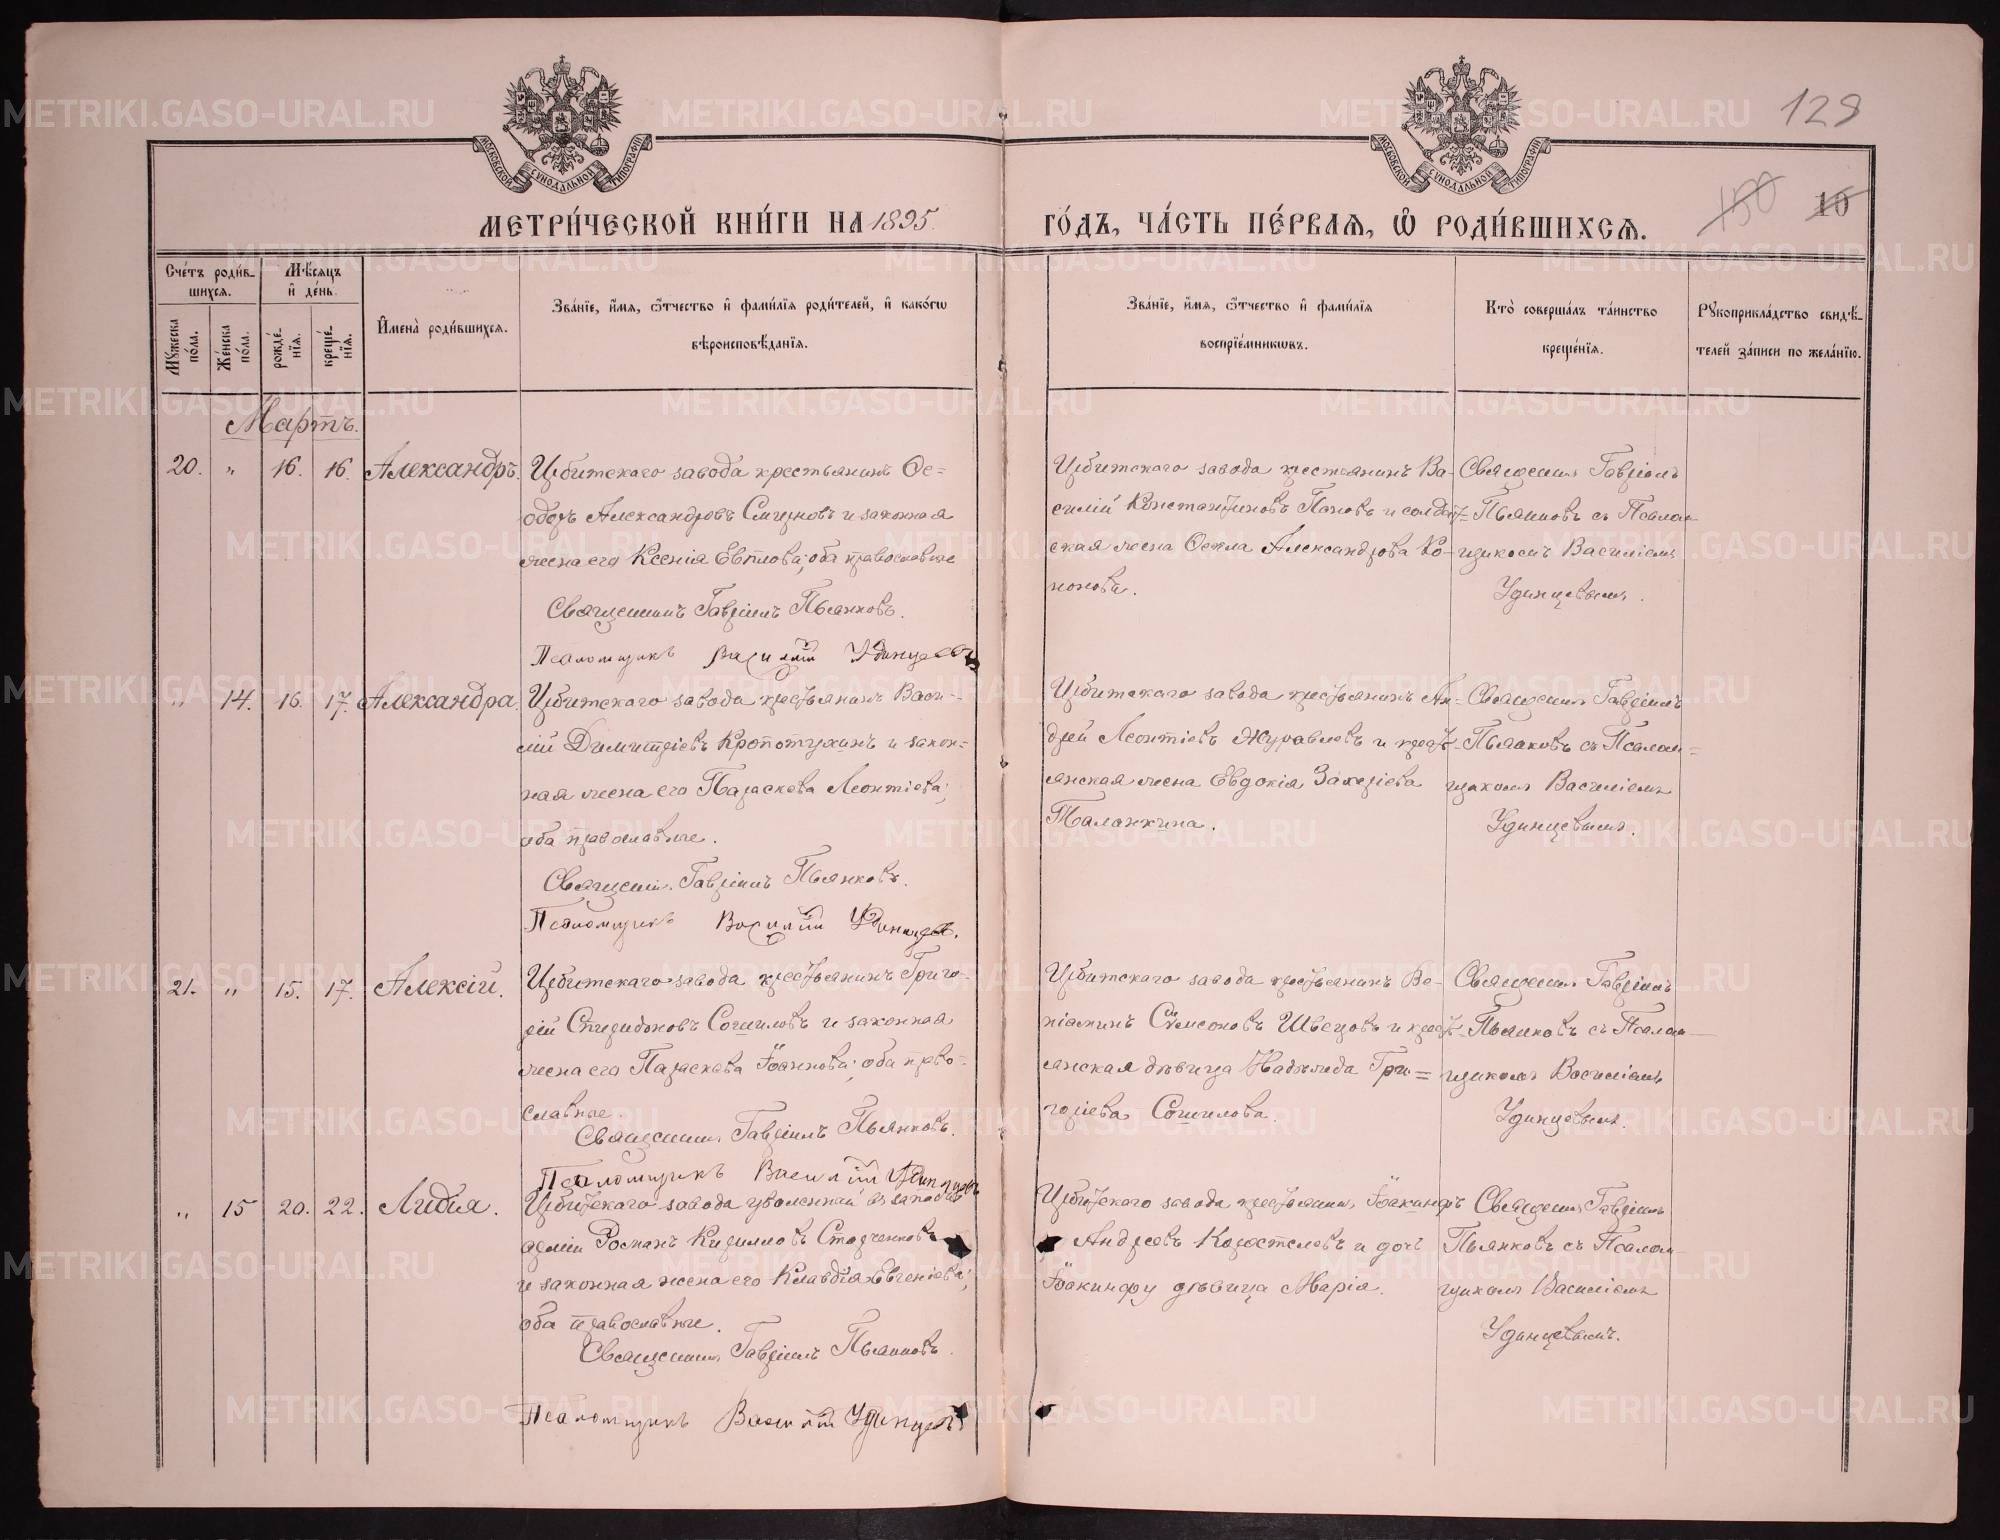 129
МЕТРИ́ЧЕСКОЙ КНИ́ГИ НА 1895. ГО́ДЪ, ЧА́СТЬ ПЕ́РВАЯ, Ѡ РОДИ́ВШИХСЯ.
150 10
Сче́тъ роди́в-
шихся.
Мѣ́сяцъ
и҆ де́нь.
Мꙋ́жеска по́ла.
Же́нска по́ла.
рожде́-
нїя.
креще́-
нїя.
И҆мена̀ роди́вшихся.
Зва́нїе, и҆́мя, ѻ҆́тчество и҆ фами́лїѧ роди́телей, и҆ како́гѡ
вѣроисповѣ́данїѧ.
Зва́нїе, и҆́мя, ѻ҆́тчество и҆ фами́лїѧ
воспрїе́мникѡвъ.
Кто̀ соверша́лъ та́инство
креще́нїѧ.
Рꙋкоприкла́дство свидѣ́-
телей за́писи по жела́нїю.
Мартъ.
20. „ 16. 16. Александръ.
Ирбитскаго завода крестьянинъ Ѳе=
одоръ Александровъ Смирновъ и законная
жена его Ксенія Евплова; оба православные
Священникъ Гавріилъ Пьянковъ.
Псаломщикъ Василій Удинцевъ
Ирбитскаго завода крестьянинъ Ва-
силій Константиновъ Пановъ и солдат-
ская жена Ѳекла Александрова Ко-
нонова.
Священник Гавріилъ
Пьянковъ съ Псалом
щикомъ Василіемъ
Удинцевымъ.
„ 14. 16. 17. Александра.
Ирбитскаго завода крестьянинъ Васи-
лій Димитріевъ Кропотухинъ и закон=
ная жена его Параскева Леонтіева;
оба православные.
Священник. Гавріилъ Пьянковъ.
Псаломщикъ Василій Удинцевъ.
Ирбитскаго завода крестьянинъ Ан-
дрей Леонтіевъ Журавлевъ и кресть-
янская жена Евдокія Захаріева
Таланкина.
Священник Гавріилъ
Пьянковъ съ Псалом=
щикомъ Василіемъ
Удинцевымъ.
21. „ 15. 17. Алексій.
Ирбитскаго завода крестьянинъ Григо-
рій Спиридоновъ Сошиловъ и законная
жена его Параскева Іоаннова; оба право=
славные.
Священник Гавріилъ Пьянковъ.
Псаломщикъ Василій Удинцевъ
Ирбитскаго завода крестьянинъ Ве-
ніаминъ Симеоновъ Швецовъ и кресть-
янская дѣвица Надежда Гри=
горіева Сошилова.
Священник Гавріилъ
Пьянковъ съ Псалом
щикомъ Василіемъ
Удинцевымъ.
„ 15 20. 22. Лидія.
Ирбитскаго завода уволенный въ запасъ
арміи Романъ Кирилловъ Сторченковъ
и законная жена его Клавдія Евгеніева;
оба православные.
Священник Гавріилъ Пьянковъ.
Псаломщикъ Василій Удинцевъ
Ирбитскаго завода крестьянин Іоакинфъ
Андреевъ Коростелевъ и дочь
Іоакинфу дѣвица Марія.
Священник Гавріилъ
Пьянковъ съ Псалом-
щиком Василіемъ
Удинцевымъ.